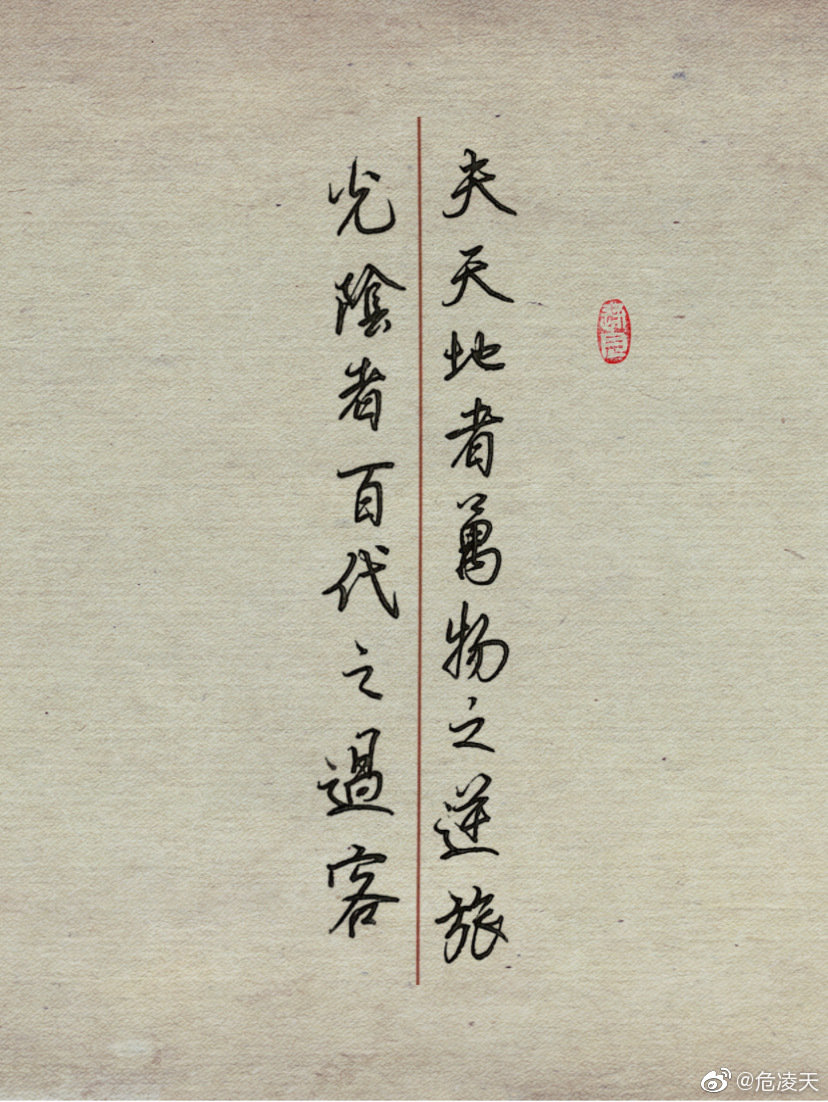 夫天地者萬物之逆旅
光陰者百代之過客
@危凌天